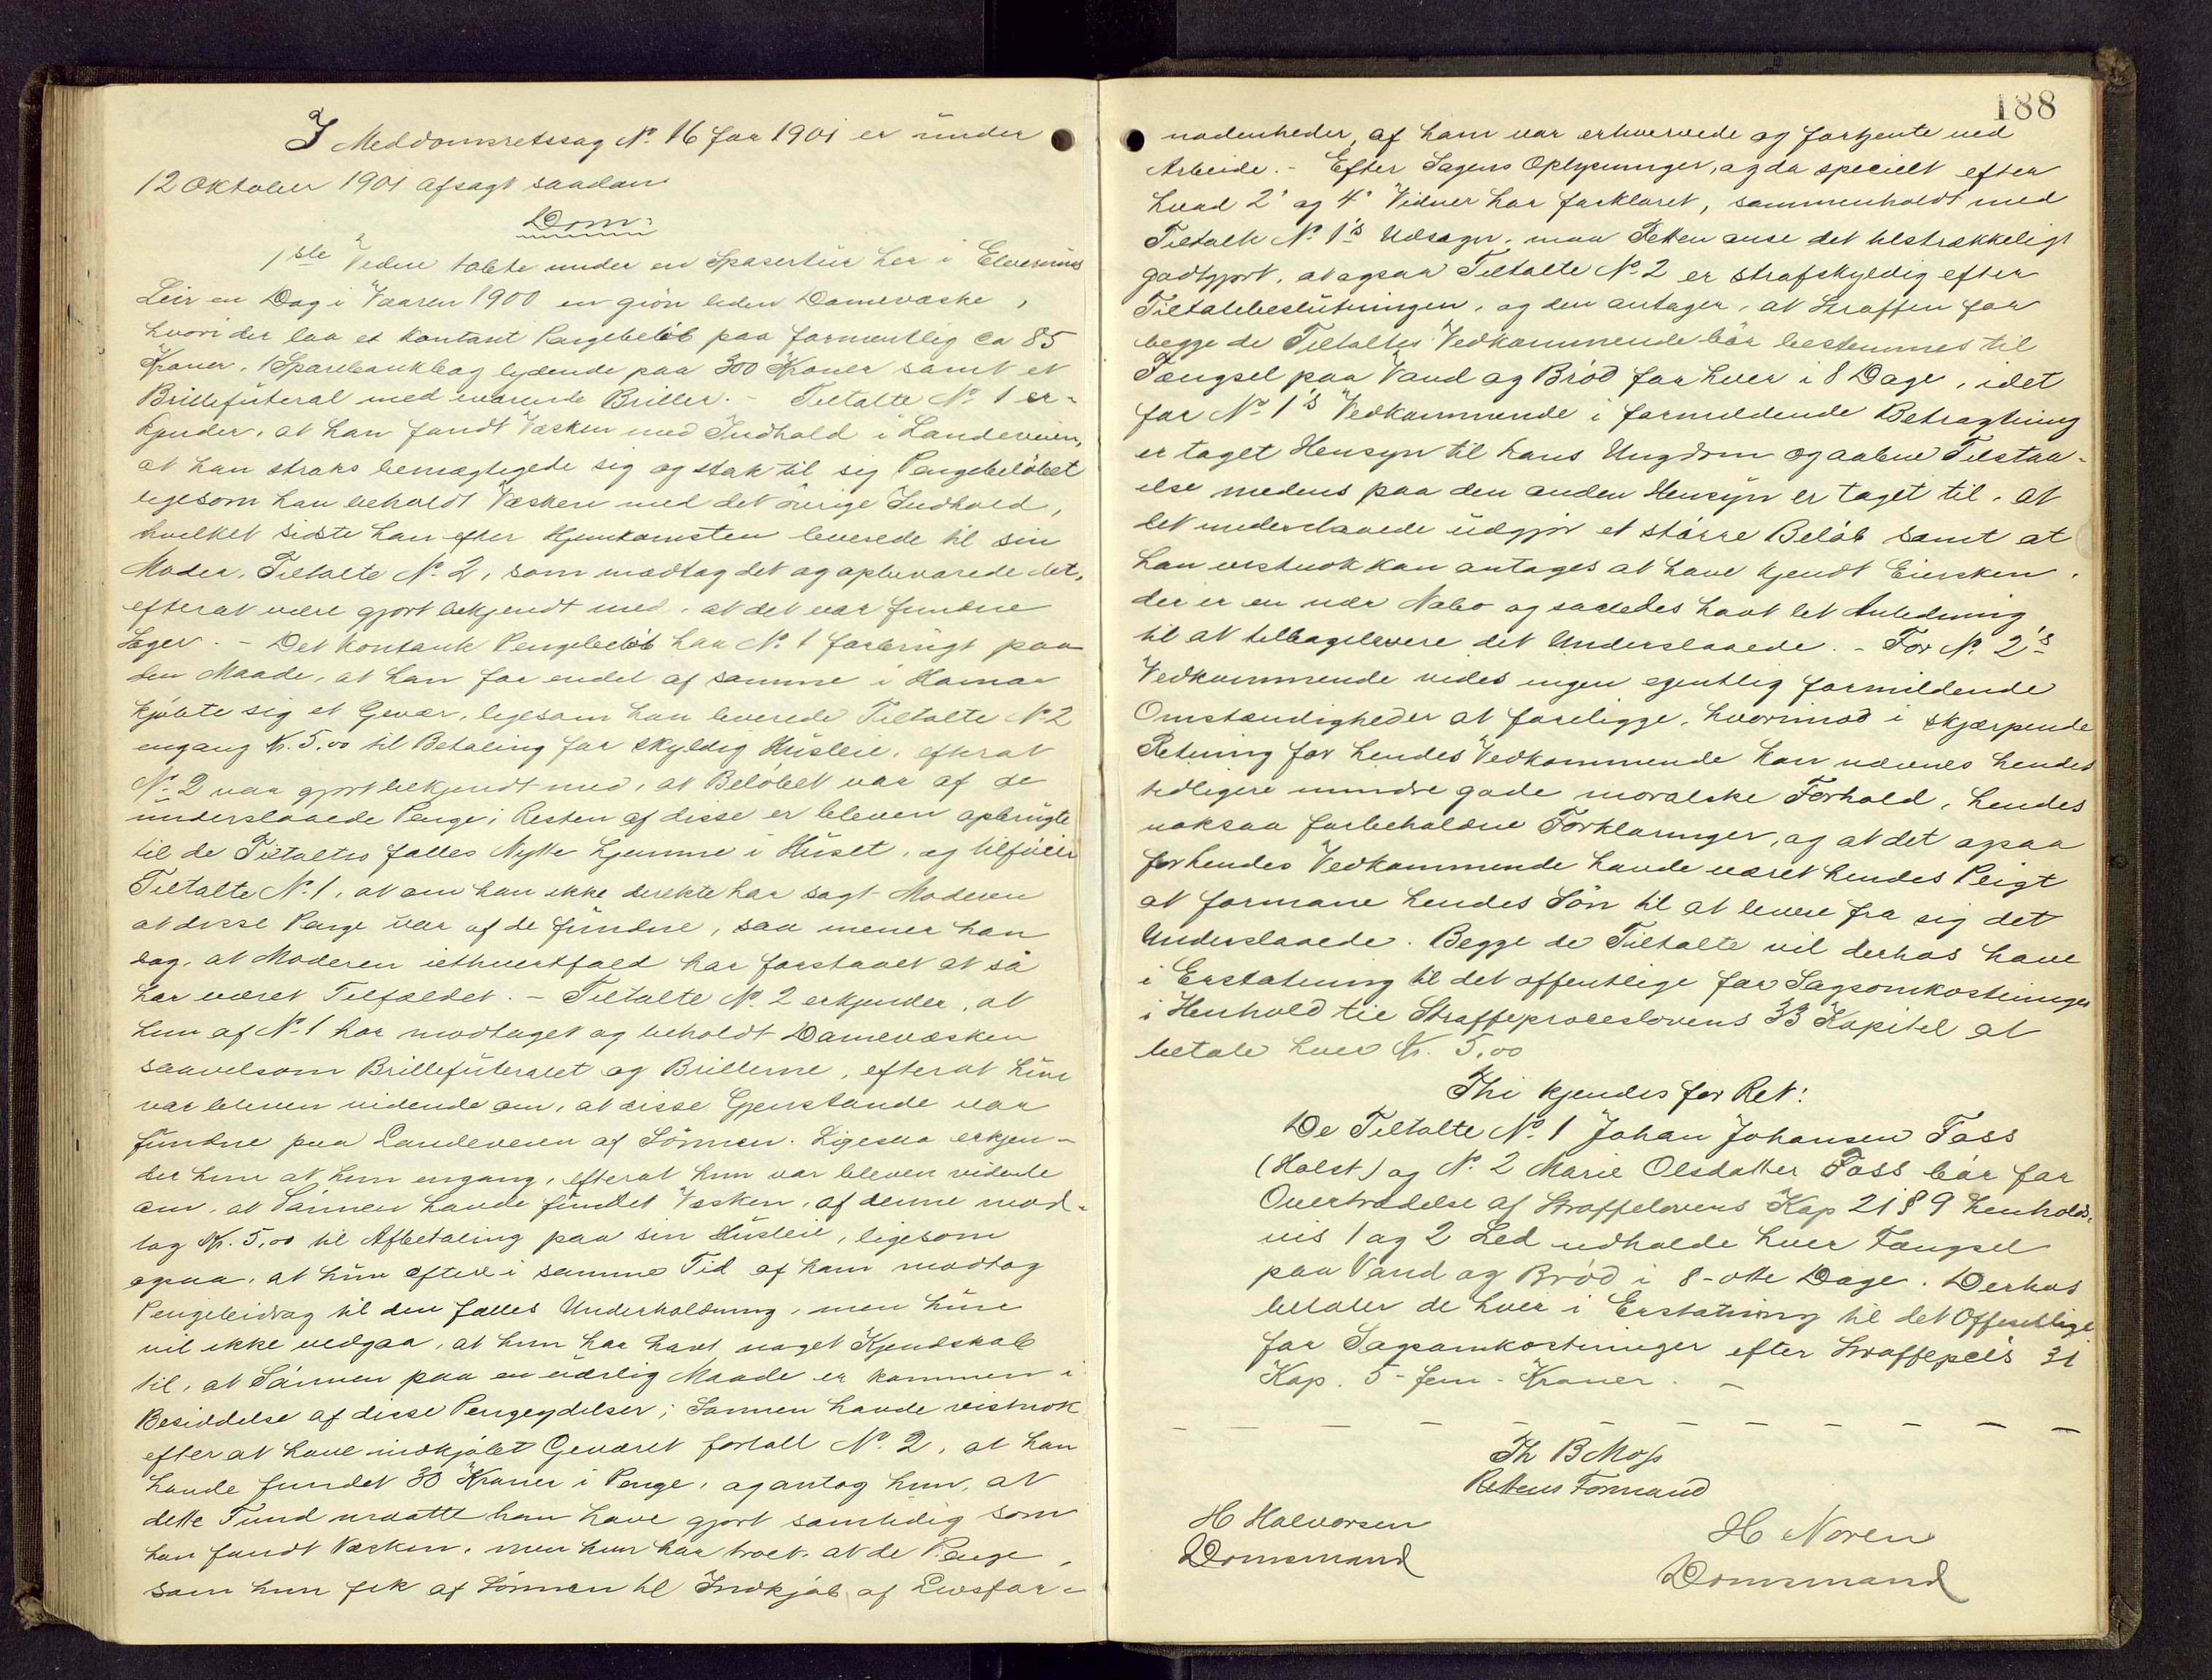 I Meddomsretssag No. 16 for 1901 er under
12 Oktober 1901 afsagt saadan
Dom:
1ste Vidne tabte under en Spasertur her i Elverums
Leir en Dag i Vaaren 1900 en grøn leden Damevæske,
hvori der laa et kontant Pengebeløb paa formentlig ca 85
Kroner, 1 Sparebankbog lydende paa 300 Kroner samt et
Brillefuteral med iværende Briller. – Tiltalte No. 1 er-
kjender, at han fandt Væsken med Indhold i Landeveien,
at han straks bemægtigede sig og stak til sig Pengebeløbet
ligesom han beholdt Væsken med det øvrige Indhold,
hvilket sidste han efter Hjemkomsten leverede til sin
Moder, Tiltalte No. 2, som modtog det og opbevarede det,
efterat være gjort bekjendt med, at det var fundne
Sager. – Det kontante Pengebeløb har No. 1 forbrugt paa
den Maade, at han for endel af samme i Hamar
kjøbte sig et Gevær, ligesom han leverede Tiltalte No. 2
engang Kr. 5,00 til Betaling for skyldig Husleie, efterat
No. 2 var gjort bekjendt med, at Beløbet var af de
underslaaede Penge; Resten af disse er bleven opbrugte
til de Tiltaltes fælles Nytte hjemme i Huset, og tilføier
Tiltalte No. 1, at om han ikke direkte har sagt Moderen
at disse Penge var af de fundne, saa mener han
dog, at Moderen iethvertfald har forstaaet at så
har været Tilfældet. – Tiltalte No. 2 erkjender, at
hun af No. 1 har modtaget og beholdt Damevæsken
saavelsom Brillefuteralet og Brillerne, efterat hun
var bleven vidende om, at disse Gjenstande var
fundne paa Landeveien af Sønnen. Ligesaa erkjen-
der hun at hun engang, efterat hun var bleven vidende
om, at Sønnen havde fundet Væsken, af denne mod-
tog Kr. 5,00 til Afbetaling paa sin Husleie, ligesom
ogsaa, at hun oftere i samme Tid af ham modtog
Pengebidrag til den fælles Underholdning, men hun
vil ikke vedgaa, at hun har havt noget Kjendskab
til, at Sønnen paa en uærlig Maade er kommen i
Besiddelse af disse Pengeydelser; Sønnen havde vistnok
efter at have indkjøbt Geværet fortalt No. 2, at han
havde fundet 30 Kroner i Penge, og antog hun, at
dette Fund maatte han have gjort samtidig som
han fandt Væsken, men hun har troet, at de Penge,
som hun fik af Sønnen til Indkjøb af Livsfor-
188
nødenheder, af ham var erhvervede og fortjente ved
Arbeide. – Efter Sagens Oplysninger, og da specielt efter
hvad 2' og 4' Vidner har forklaret, sammenholdt med
Tiltalte No. 1's Udsagn, maa Retten anse det tilstrækkeligt
godtgjort, at ogsaa Tiltalte No. 2 er strafskyldig efter
Tiltalebeslutningen, og den antager, at Straffen for
begge de Tiltaltes Vedkommende bør bestemmes til
Fængsel paa Vand og Brød for hver i 8 Dage, idet
for No. 1's Vedkommende i formildende Betragtning
er taget Hensyn til hans Ungdom og aabne Tilstaa-
else medens paa den anden Hensyn er taget til, at
det underslaaede udgjør et større Beløb samt at
han vistnok kan antages at have kjendt Eiersken,
der er en nær Nabo og saaledes havt let Anledning
til at tilbagelevere det Underslaaede. – For No. 2's
Vedkommende vides ingen egentlig formildende
Omstændigheder at foreligge, hvorimod i skjærpende
Retning for hendes Vedkommende kan nævnes hendes
tidligere mindre gode moralske Forhold, hendes
noksaa forbeholdne Forklaringer, og at det ogsaa
for hendes Vedkommende havde været hendes Pligt
at formane hendes Søn til at levere fra sig det
Underslaaede. Begge de Tiltalte vil derhos have
i Erstatning til det offentlige for Sagsomkostninger
i Henhold til Straffeproceslovens 33 Kapitel at
betale hver Kr. 5,00
Thi kjendes for Ret:
De Tiltalte No. 1 Johan Johansen Foss
(Holst) og No. 2 Marie Olsdatter Foss bør for
Overtrædelse af Straffelovens Kap 21 § 9 henholds-
vis 1 og 2 Led udholde hver Fængsel
paa Vand og Brød i 8 - otte Dage. Derhos
betaler de hver i Erstatning til det Offentlige
for Sagsomkostninger efter Straffepcls 31
Kap. 5 - fem - Kroner. –
Th B Moss
Rettens Formand
H Halvorsen
Domsmand
H Noren
Domsmand